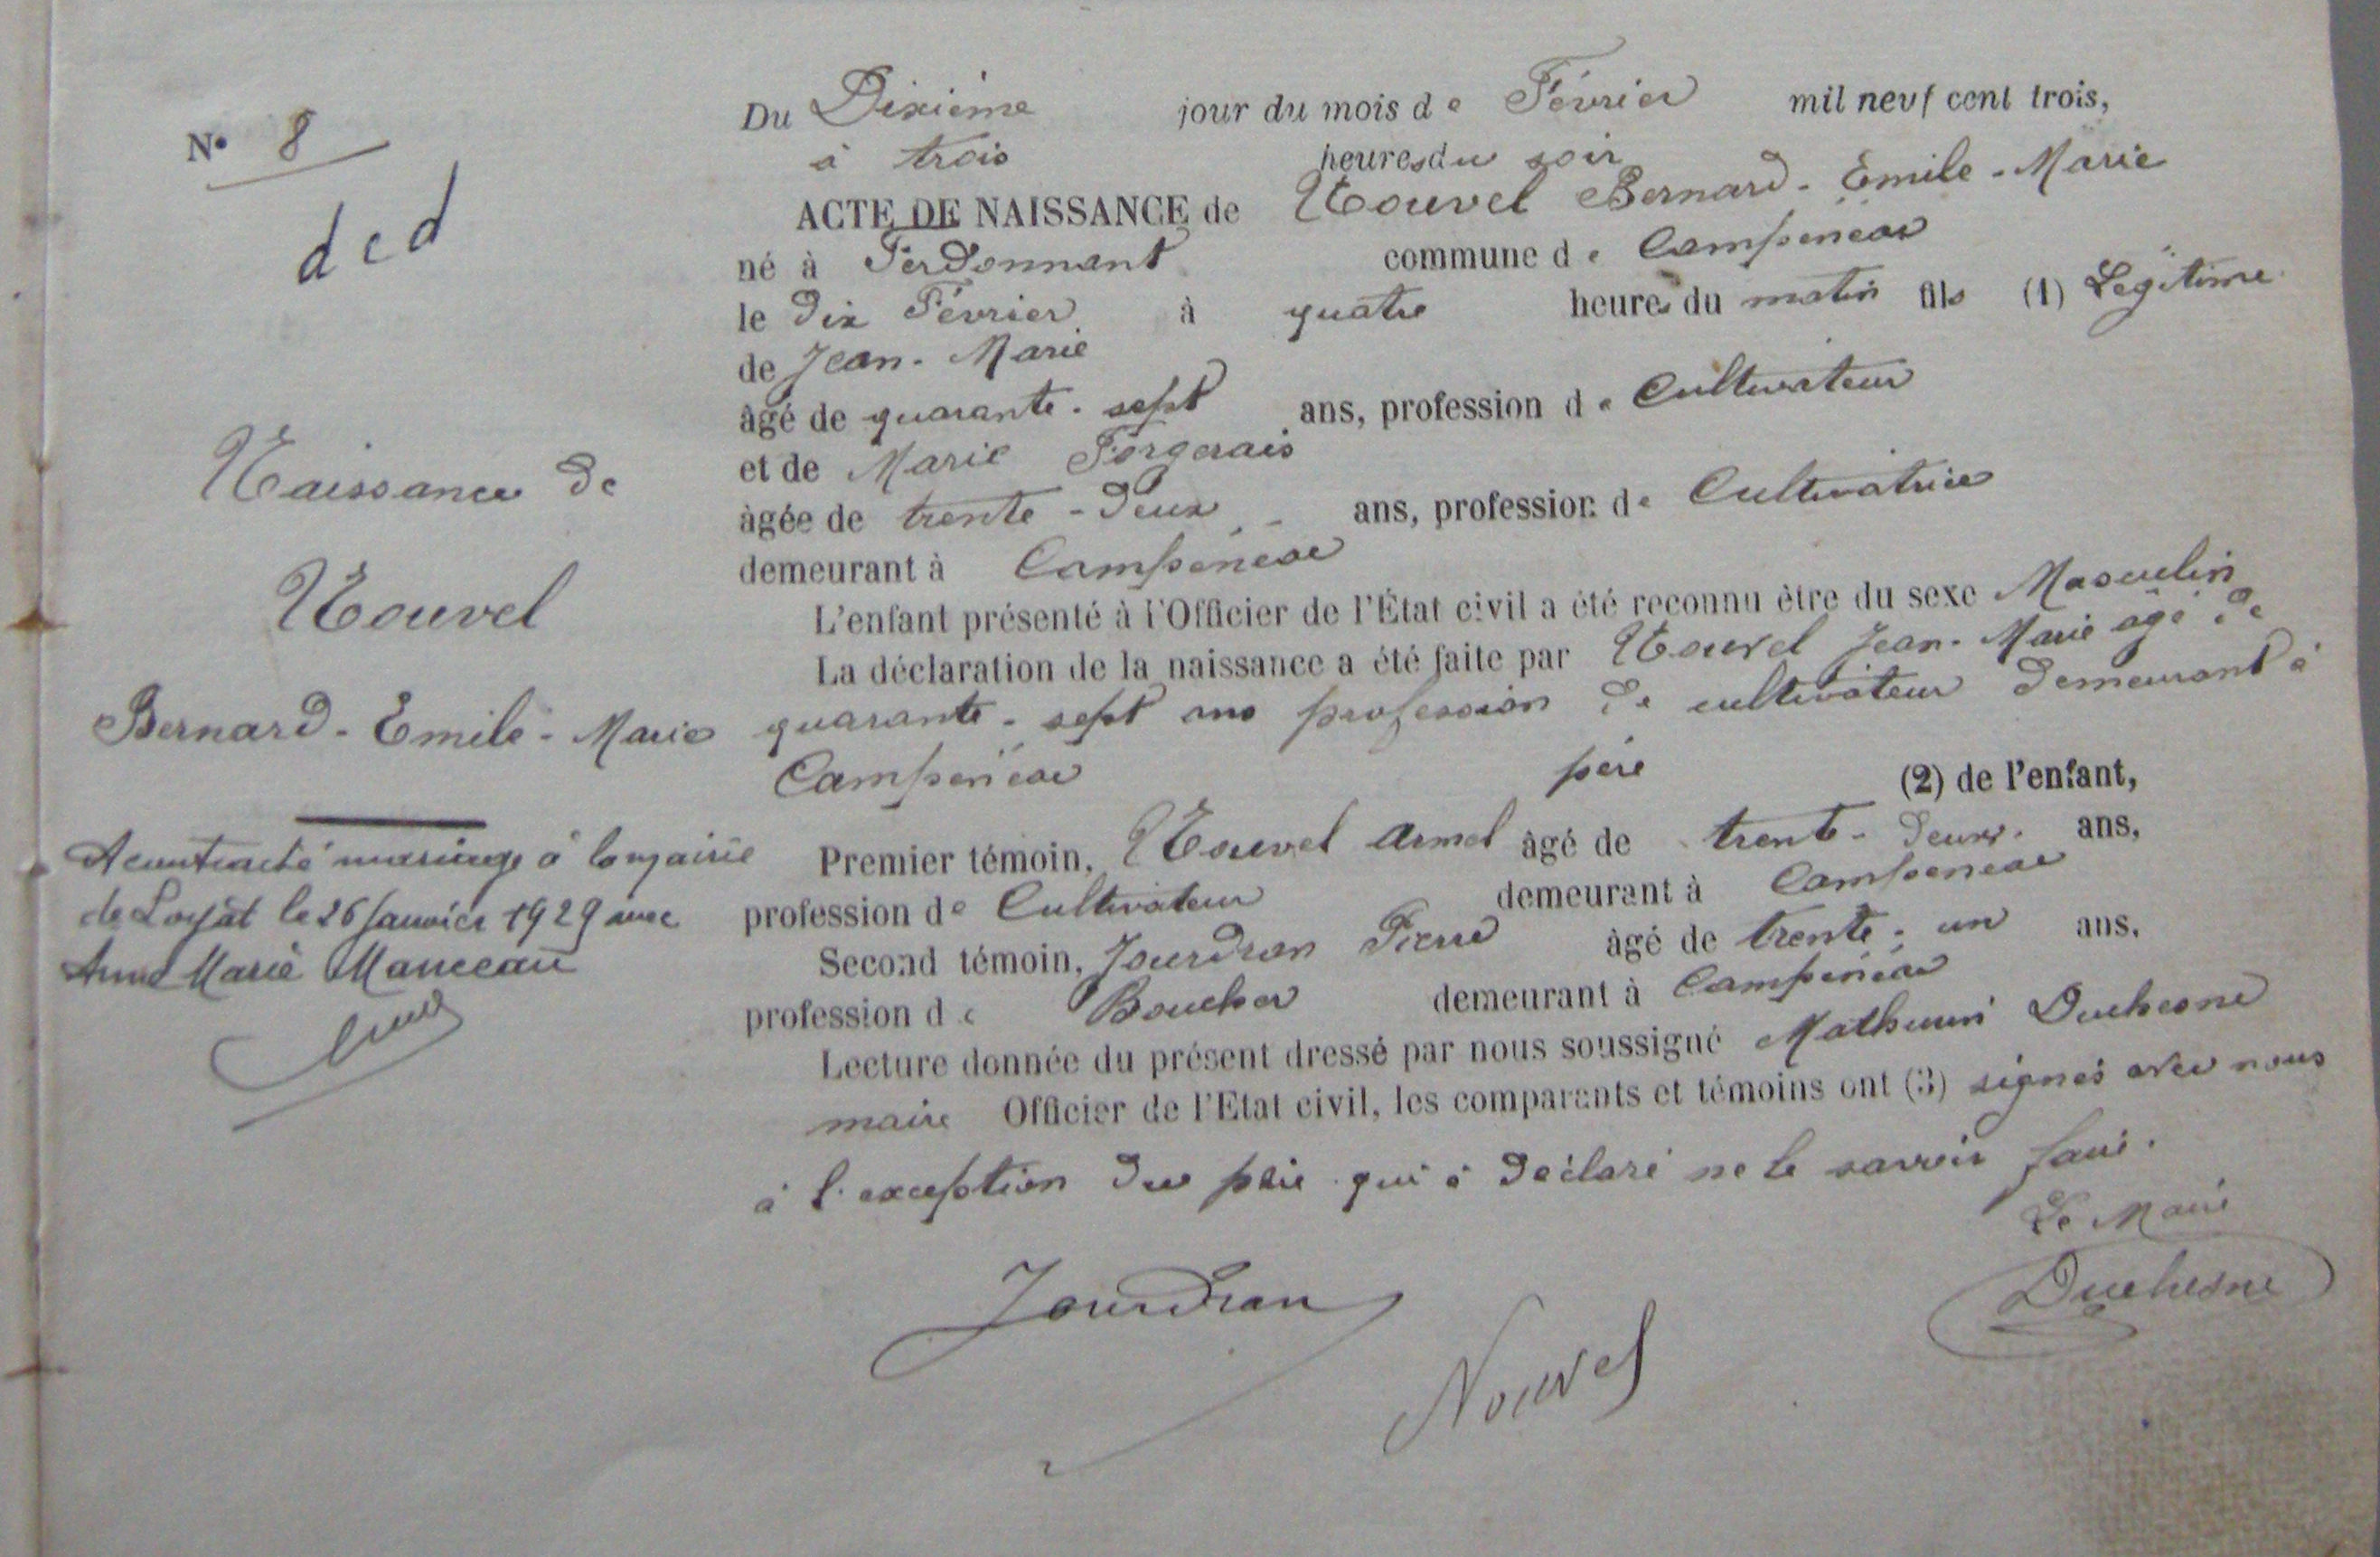 N° 8
dcd
Naissance de
Nouvel
Bernard - Emile - Marie
A contracté mariage à la mairie
de Loyat le 26 Janvier 1929 avec
Anne Marie Manceau
Du Dixième jour du mois de Février mil neuf cent trois,
à trois heures du soir
ACTE DE NAISSANCE de Nouvel Bernard - Emile - Marie
né à Perdonnant commune de Campénéac
le dix Février à quatre heures du matin fils (1) Légitime
de Jean - Marie
âgé de quarante - sept ans, profession de Cultivateur
et de Marie Forgerais
âgée de trente - deux ans, profession de Cultivatrice
demeurant à Campénéac
L'enfant présenté à l'Officier de l'État civil a été reconnu être du sexe Masculin
La déclaration de la naissance a été faite par Nouvel Jean - Marie âgé de
quarante - sept ans profession de cultivateur demeurant à
Campénéac père (2) de l'enfant,
Premier témoin, Nouvel Armel âgé de trente - deux ans,
profession de Cultivateur demeurant à Campénéac
Second témoin, Jourdran Pierre âgé de trente - un ans,
profession de Boucher demeurant à Campénéac
Lecture donnée du présent dressé par nous soussigné Mathurin Duchesne
maire Officier de l'Etat civil, les comparants et témoins ont (3) signés avec nous
à l'exception du père qui a déclaré ne le savoir faire.
Le Maire
Duchesne
Jourdran
Nouvel